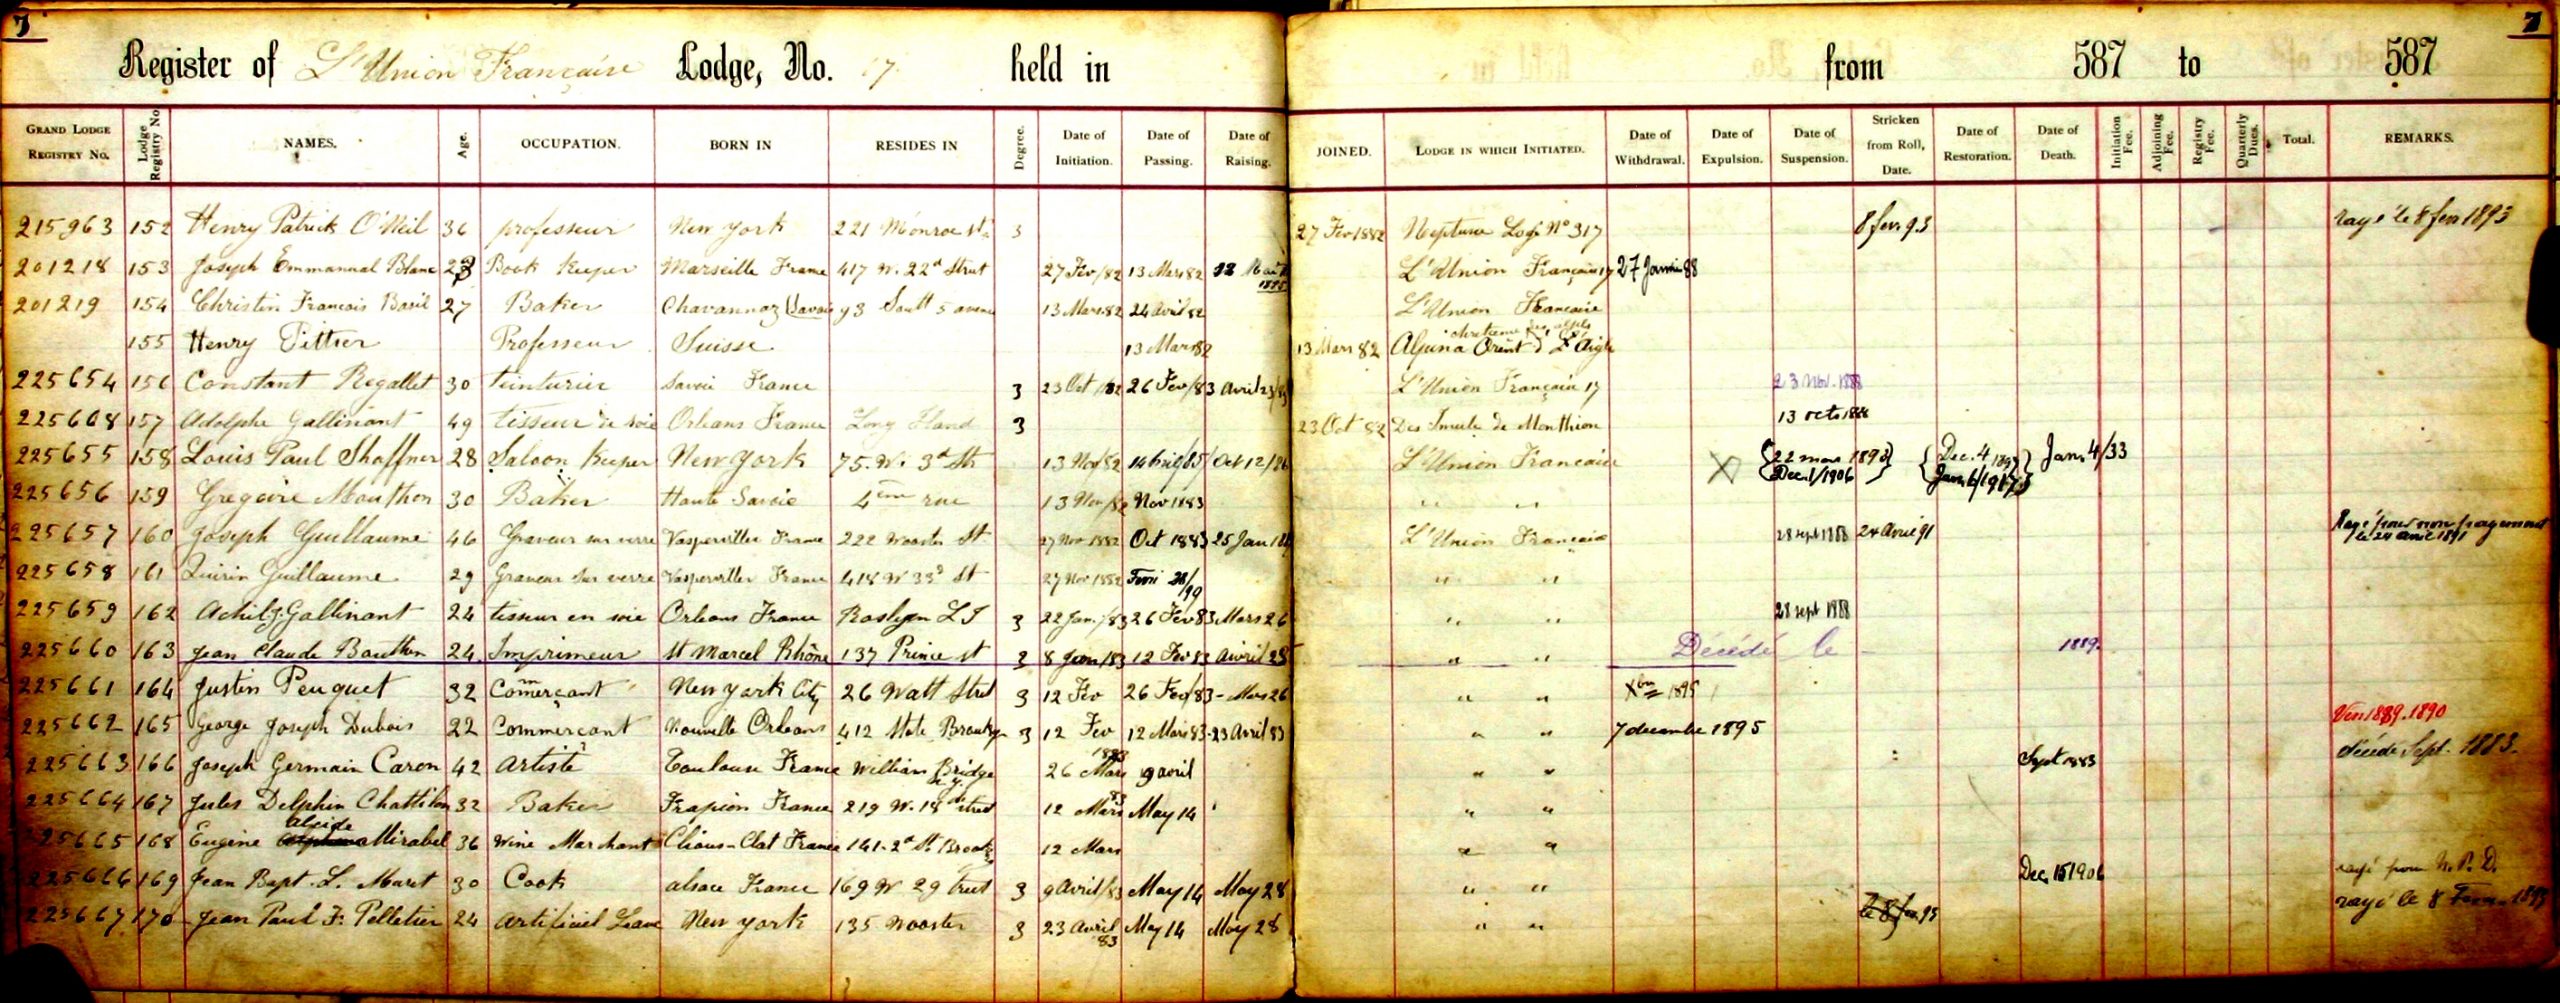 7 7
Register of L'Union Française Lodge, No. 17 held in from 587 to 587
GRAND LODGE REGISTRY NO. Lodge Registry No NAMES. Age. OCCUPATION. BORN IN RESIDES IN Degree. Date of Initiation. Date of Passing. Date of Raising. JOINED. LODGE IN WHICH INITIATED. Date of Withdrawal. Date of Expulsion. Date of Suspension. Stricken from Roll, Date. Date of Restoration. Date of Death. Initiation Fee. Adjoining Fee. Registry Fee. Quarterly Dues. Total. REMARKS.
215963 152 Henry Patrick O'Neil 36 professeur New York 221 Monroe st. 3 27 Fev 1882 Neptune Lodge No 317 8 fevr 93 rayé le 8 fevr 1893
201218 153 Joseph Emmanuel Blanc Book Keeper Marseille France 417 W. 22d Street 27 Fev/82 13 Mars 82 L'Union Française 17 27 Janvier 88
201219 154 Christin Francois Basil 27 Baker Chavannaz (Savoie 93 South 5 avenue 13 Mars 82 24 Avril 82 L'Union Française
155 Henry Pittier Professeur Suisse 13 Mars 82 13 Mars 82 Alpina Orient d L'Aigle
225654 156 Constant Regallet 30 teinturier Savoie France 3 23 Oct /82 26 Fev/83 Avril 23/83 L'Union Française 17 23 Nov. 1888
225608 157 Adolphe Gallinant 49 tisseur de soie Orleans France Long Iland 3 23 Oct 82 Des Imule de Monthion 13 octo 1888
225655 158 Louis Paul Shaffner 28 Saloon Keeper New York 75. W. 3d St. 13 Nov/82 Oct 12/86 L'Union Francaise X {22 mars 1893 Dec. 1/1906} {Dec. 4 1897 Jan. 6/1917} Jan. 4/33
225656 159 Gregoire Mouthon 30 Baker Haute Savoie 4eme rue 13 Nov/82 Nov 1883 " "
225657 160 Joseph Guillaume 46 Graveur sur verre Vasperviller France 222 Wooster St. 27 Nov 1882 Oct 1883 25 Jan L'Union Francaise 28 sept 1888 24 Avril 91 Rayé pour non payement le 24 avril 1891
225658 161 Quirin Guillaume 29 Graveur sur verre Vasperviller France 418 W 33d St 27 Nov 1882 " "
225659 162 Achil. J. Gallinant 24 tisseur en soie Orleans France Roslyn L I 3 22 Jan./83 26 Fev 83 Mars 26 " " 28 sept 1888
225660 163 Jean Claude Bouthon 24 Imprimeur St Marcel Rhône 137 Prince st 3 8 Jan/83 12 Fev 83 Avril 23 " " Décédé le 1889.
225661 164 Justin Peuguet 32 Commerçant New York City 26 Watt Street 3 12 Fev 26 Fev/83 - Mars 26 " " Xbre 1895
225662 165 George Joseph Dubois 22 Commercant Nouvelle Orleans 412 State Brooklyn 3 12 Fev 12 Mars 83 - 23 Avril 83 " " 7 decembre 1895 Ven 1889. 1890
225663 166 Joseph Germain Caron 42 Artiste Toulouse France William Bridge N.Y. 26 Mars 1883 9 avril " " Sept 1883 décédé Sept. 1883.
225664 167 Jules Delphin Chattillon 32 Baker Frapion France 219 W. 18th street 12 Mars 83 May 14 " "
225665 168 Eugène Alcide Mirabel 36 Wine Marchant Clious-Clat France 141-2d St. Brook 12 Mars " "
225666 169 Jean Bapt. L. Muret 30 Cook alsace France 169 W 29 treet 3 9 Avril/83 May 14 May 28 " " Dec. 15 1906 rayé pour N. P. D.
225667 170 Jean Paul F. Pelletier 24 Artificiel Leave New York 135 Wooster 3 23 Avril 83 May 14 May 28 " " le 8 fev. 93 rayé le 8 Fevr. 1893